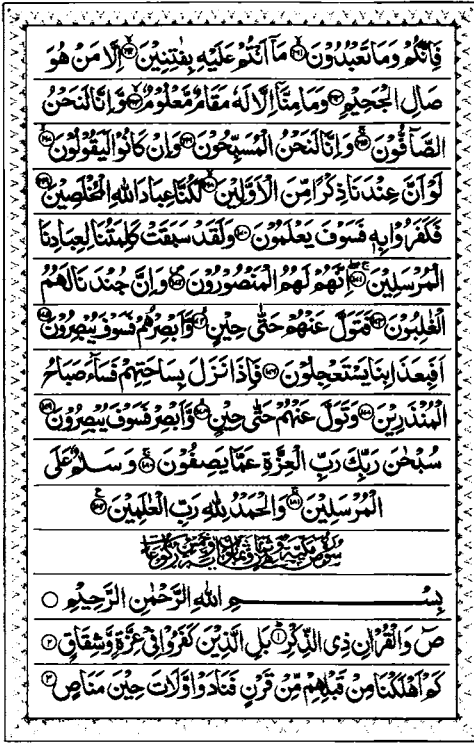 فَاِنَّكُمْ وَمَا تَعْبُدُوْنَ ۝۱۶۱ مَاۤ اَنْتُمْ عَلَيْهِ بِفٰتِنِيْنَ ۝۱۶۲ اِلَّا مَنْ هُوَ
صَالِ الْجَحِيْمِ ۝۱۶۳ وَمَا مِنَّاۤ اِلَّا لَهٗ مَقَامٌ مَّعْلُوْمٌ ۝۱۶۴ وَّاِنَّا لَنَحْنُ
الصَّآفُّوْنَ ۝۱۶۵ وَاِنَّا لَنَحْنُ الْمُسَبِّحُوْنَ ۝۱۶۶ وَاِنْ كَانُوْا لَيَقُوْلُوْنَ ۝۱۶۷
لَوْ اَنَّ عِنْدَنَا ذِكْرًا مِّنَ الْاَوَّلِيْنَ ۝۱۶۸ لَكُنَّا عِبَادَ اللّٰهِ الْمُخْلَصِيْنَ ۝۱۶۹
فَكَفَرُوْا بِهٖ فَسَوْفَ يَعْلَمُوْنَ ۝۱۷۰ وَلَقَدْ سَبَقَتْ كَلِمَتُنَا لِعِبَادِنَا
الْمُرْسَلِيْنَ ۝۱۷۱ اِنَّهُمْ لَهُمُ الْمَنْصُوْرُوْنَ ۝۱۷۲ وَاِنَّ جُنْدَنَا لَهُمُ
الْغٰلِبُوْنَ ۝۱۷۳ فَتَوَلَّ عَنْهُمْ حَتّٰى حِيْنٍ ۝۱۷۴ وَّاَبْصِرْهُمْ فَسَوْفَ يُبْصِرُوْنَ ۝۱۷۵
اَفَبِعَذَابِنَا يَسْتَعْجِلُوْنَ ۝۱۷۶ فَاِذَا نَزَلَ بِسَاحَتِهِمْ فَسَآءَ صَبَاحُ
الْمُنْذَرِيْنَ ۝۱۷۷ وَتَوَلَّ عَنْهُمْ حَتّٰى حِيْنٍ ۝۱۷۸ وَّاَبْصِرْ فَسَوْفَ يُبْصِرُوْنَ ۝۱۷۹
سُبْحٰنَ رَبِّكَ رَبِّ الْعِزَّةِ عَمَّا يَصِفُوْنَ ۝۱۸۰ وَسَلٰمٌ عَلَى
الْمُرْسَلِيْنَ ۝۱۸۱ وَالْحَمْدُ لِلّٰهِ رَبِّ الْعٰلَمِيْنَ ۝۱۸۲
بِسْمِ اللّٰهِ الرَّحْمٰنِ الرَّحِيْمِ ۝
صٓ وَالْقُرْاٰنِ ذِى الذِّكْرِ ۝۱ بَلِ الَّذِيْنَ كَفَرُوْا فِىْ عِزَّةٍ وَّشِقَاقٍ ۝۲
كَمْ اَهْلَكْنَا مِنْ قَبْلِهِمْ مِّنْ قَرْنٍ فَنَادَوْا وَّلَاتَ حِيْنَ مَنَاصٍ ۝۳